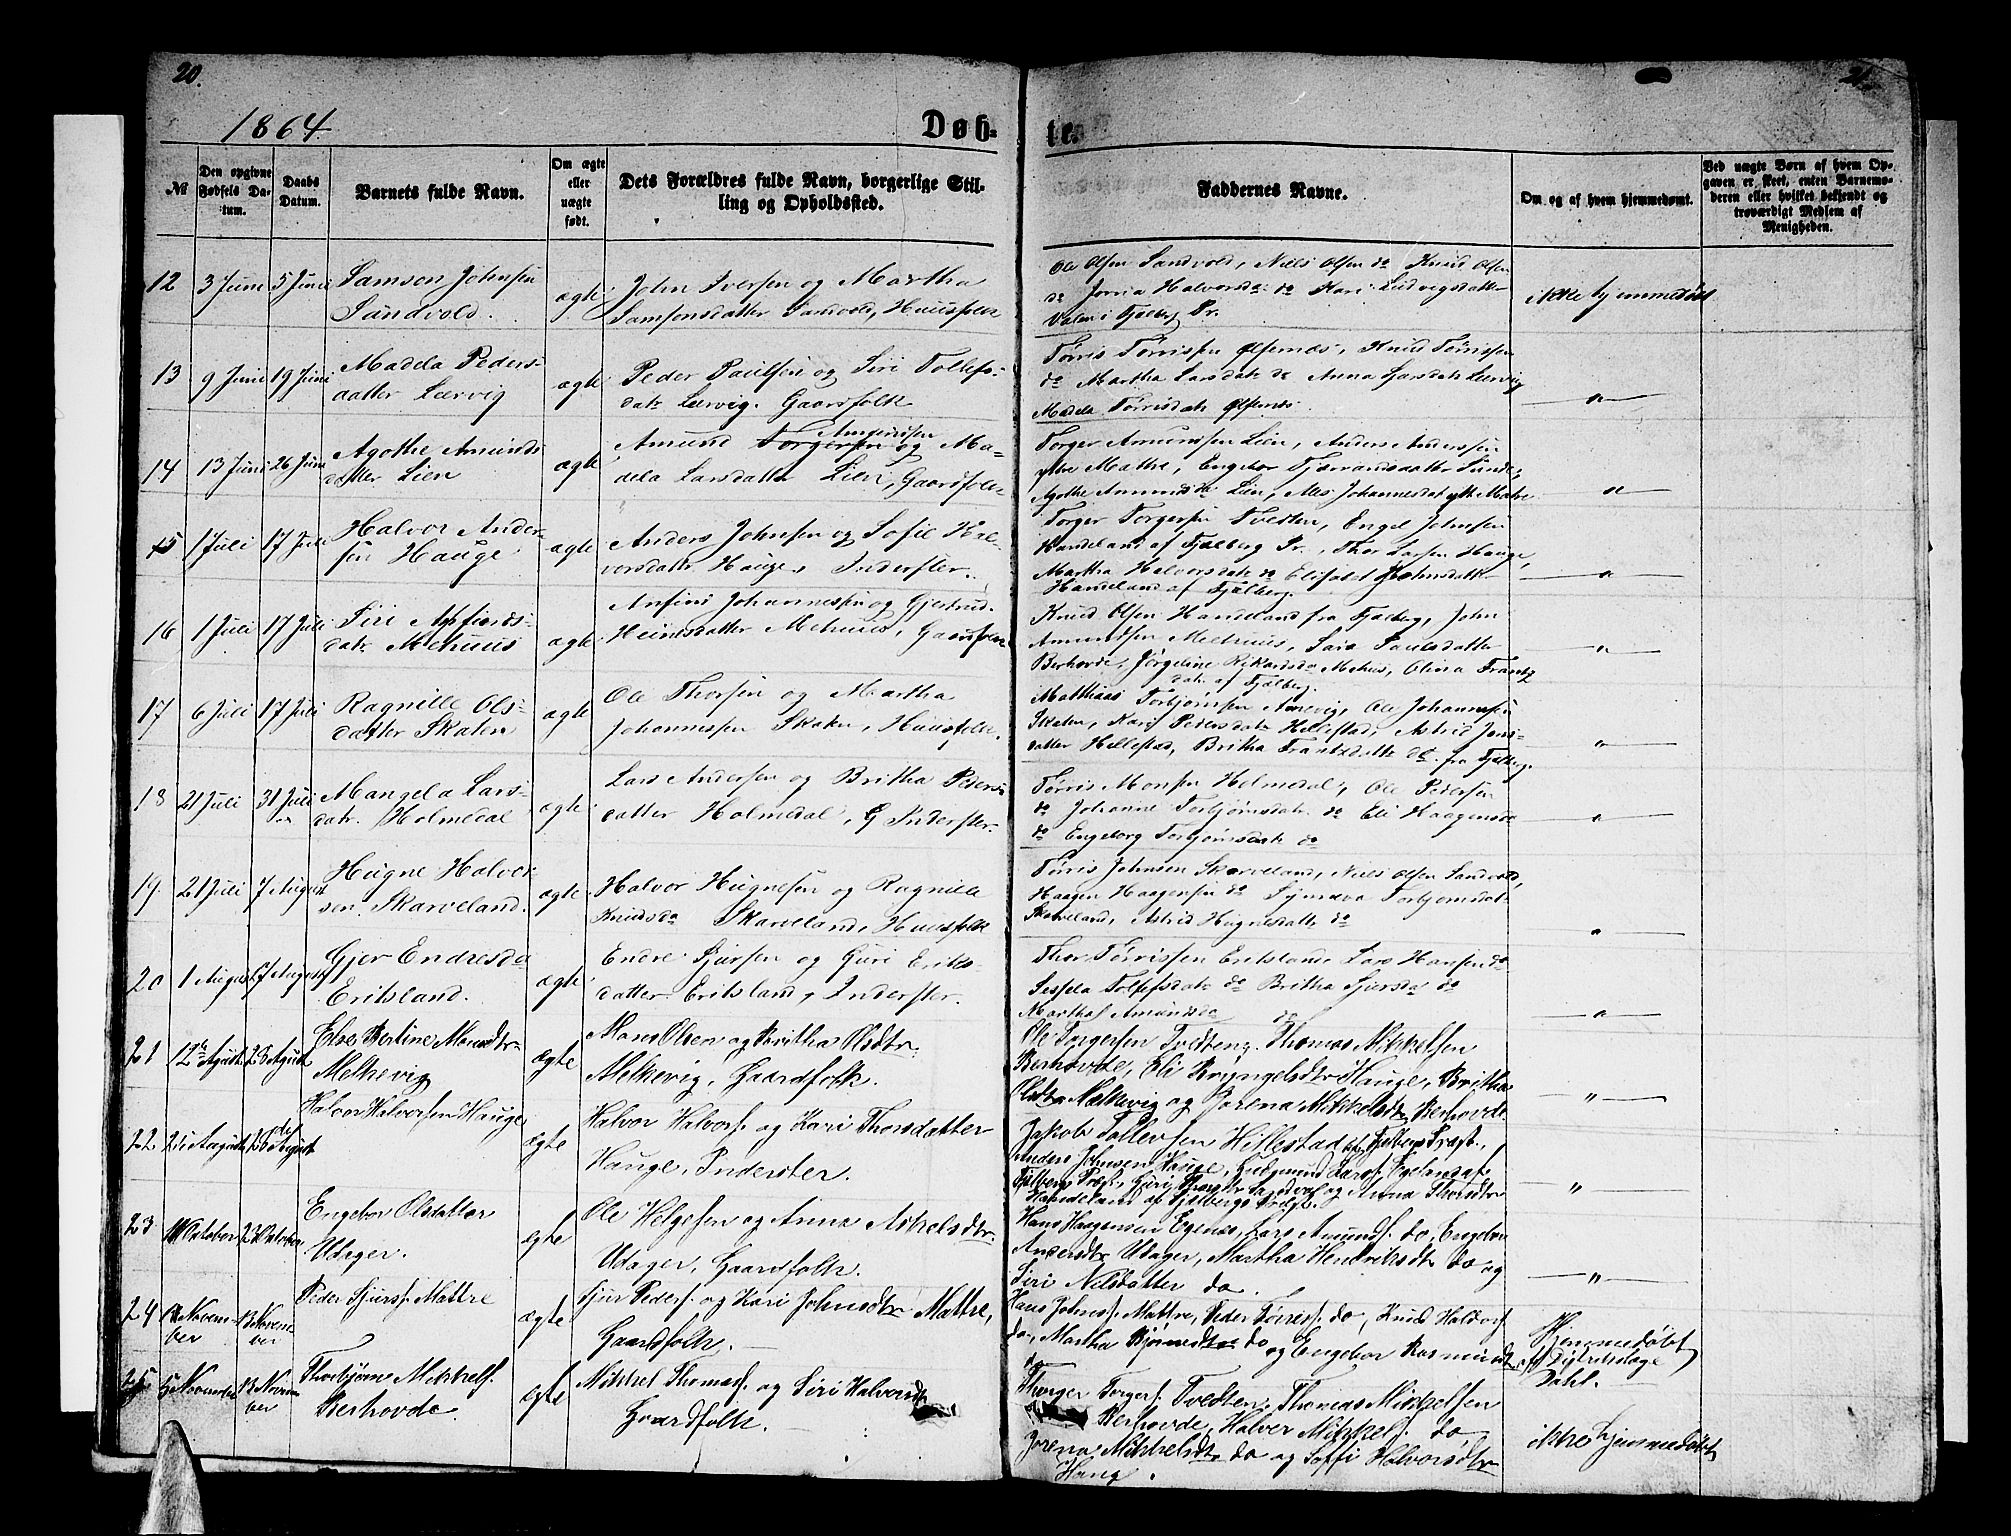 20.
21.
1864.
Døb-
te.
№
Den opgivne Fødsels Da-
tum.
Daabs Datum.
Barnets fulde Navn.
Om ægte eller uægte født.
Dets Forældres fulde Navn, borgerlige Stil-
ling og Opholdssted.
Faddernes Navne.
Om og af hvem hjemmedøbt.
Ved uægte Børn af hvem Op-
gaven er skeet, enten Barnemo-
deren eller hvilket bekjendt og
troværdigt Medlem af
Menigheden.
12 3 Juni 5 Juni Samson Johnsen
Sandvold.
ægte
John Iversen og Martha
Samsonsdatter Sandvold, Huusfolk
Ole Olsen Sandvold, Niels Olsen do Knud Olsen
do Jorria Halvorsda: do Kari Ludvigsdatter
Valen i Fjelberg Pr.
ikke hjemmedøbt
13 9 Juni 19 Juni Madela Peders-
datter Lærvig
ægte
Peder Paulsen og Siri Tollefs-
datr Lærvig. Gaardfolk
Tørris Tørrissen Ølfernæs, Knud Tørrissen
do Martha Larsdatr do Anna Larsdatr Lærvig
Madela Tørrisdatr Ølfernæs.
— " —
14 13 Juni 26 Juni Agothe Amunds
datter Lien
ægte
Amundsen
Amund Torgersen og Ma-
dela Larsdatter Lien, Gaardfolk
Torger Amundsen Lien, Anders Anderssen
ytre Mattre, Engebor Tjerrandsdatter Sunde,
Agothe Amundsda Lien, Ales Johannesdat ytt Matre
— " —
15 1 Juli 17 Juli Halvor Ander-
sen Hauge
ægte
Anders Johnsen og Sofie Hal-
vorsdatr Hauge, Inderster.
Torger Torgersen Tvedten, Engel Johnsen
Handeland af Fjelberg Pr., Thor Larsen Hauge,
Martha Halvorsdatr do Elisabet Johnsdatr
Handeland af Fjelberg.
— " —
16 1 Juli 17 Juli Siri Anfinds-
datr Mehuus
ægte
Anfind Johannesen og Gjertrud
Heinesdatter Mehuus, Gaardfolk
Knud Olsen Handeland fra Fjelberg, John
Amundsen Mehuus, Sara Paulsdatter
Berhovde, Jørgeline Rikardsda Mehus, Olina Frantz
datr af Fjelberg.
— " —
17 6 Juli 17 Juli Ragnille Ols-
datter Skaten
ægte
Ole Thorsen og Martha
Johannessen Skaten, Huusfolk.
Matthias Torbjørnsen Arnevig, Ole Johannessen
Skaten, Kari Pedersdatr Hellestad, Astrid Jans-
datter Hellestad, Britha Frantzdatr do fra Fjelberg.
— " —
18 21 Juli 31 Juli Mangela Lars-
datr. Holmedal
ægte
Lars Andersen og Britha Peders-
datter Holmedal, G Inderster.
Tørris Monsen Holmedal, Ole Pedersen
do Johanne Torbjørnsdatr do Eli Haagensda
do Engeborg Torbjørnsdatr do
— " —
19 21 Juli 7 August Hugne Halvor-
sen. Skarveland.
ægte
Halvor Hugnesen og Ragnille
Knudsda Skarveland, Huusfolk
Tørris Johnsen Skarveland, Niels Olsen Sandvold,
Haagen Haagensen do Synneva Torbjørnsdat-
Skarveland, Astrid Hugnesdatr do
"
20 1 August 7 August Gjer Endresda
Eritsland.
ægte
Endre Sjursen og Guri Eriks-
datter Eritsland, Inderster.
Thor Tørrissen Eritsland Lars Hansen do
Sessela Tollefsdatr do Britha Sjursda do
Martha Amundsda do
— " —
21 12te August 28 August Else Bertine Monsdtr
Melkevig
ægte
Mons Olsen og Britha Olsdtr.
Melkevig, Gaardfolk.
Ole Torgersen Tvedten, Thomas Mikkelsen
Berhovde, Eli Bryngelsdtr Hauge, Britha
Olsdtr Melkevig og Jorena Mikkelsdtr Berhovde.
— " —
22 21 August 28 August Halvor Halversen Hauge
ægte
Halvor Halvors. og Kari Thorsdatter
Hauge, Inderster.
Jakob Tollevsen Hillestad af Fjelbergs Præst.,
Anders Johnsen Hauge, Gudmund Lars. Egeland af
Fjelbergs Præst., Guri Thorsdtr Sandvol og Anna Thorsdtr
Handeland af Fjelbergs Præst.
— " —
23 October 23 October Engebor Olsdatter
Udager.
ægte
Ole Helgesen og Anna Askelsdtr.
Udager, Gaardfolk.
Hans Haagensen Egenes, Lars Amunds. do, Engebor
Andersdtr Udager, Martha Hendriksdtr do og
Siri Nilsdatter do.
— " —
24 November 13 November Peder Sjurs. Mattre
ægte
Sjur Peders. og Kari Johnsdtr Mattre,
Gaardfolk.
Hans Johns. Mattre, Peder Tørres. do, Knud Haldors.
do, Martha Bjørnsdtr do og Engebor Rasmusdtr
do
Hjemmedøbt
af Distriktslæge
Dahl.
25 5 November 13 November Thorbjørn Mikkels.
Berhovde.
ægte
Mikkel Thomas. og Siri Halvorsdtr
Gaardfolk.
Thorger Torgers. Tvedten, Thomas Mikkelsen
Berhovde, Halver Mikkels. do,
Jorena Mikkelsdtr do og Soffi Halvorsdtr
Haug.
ikke hjemmedøbt